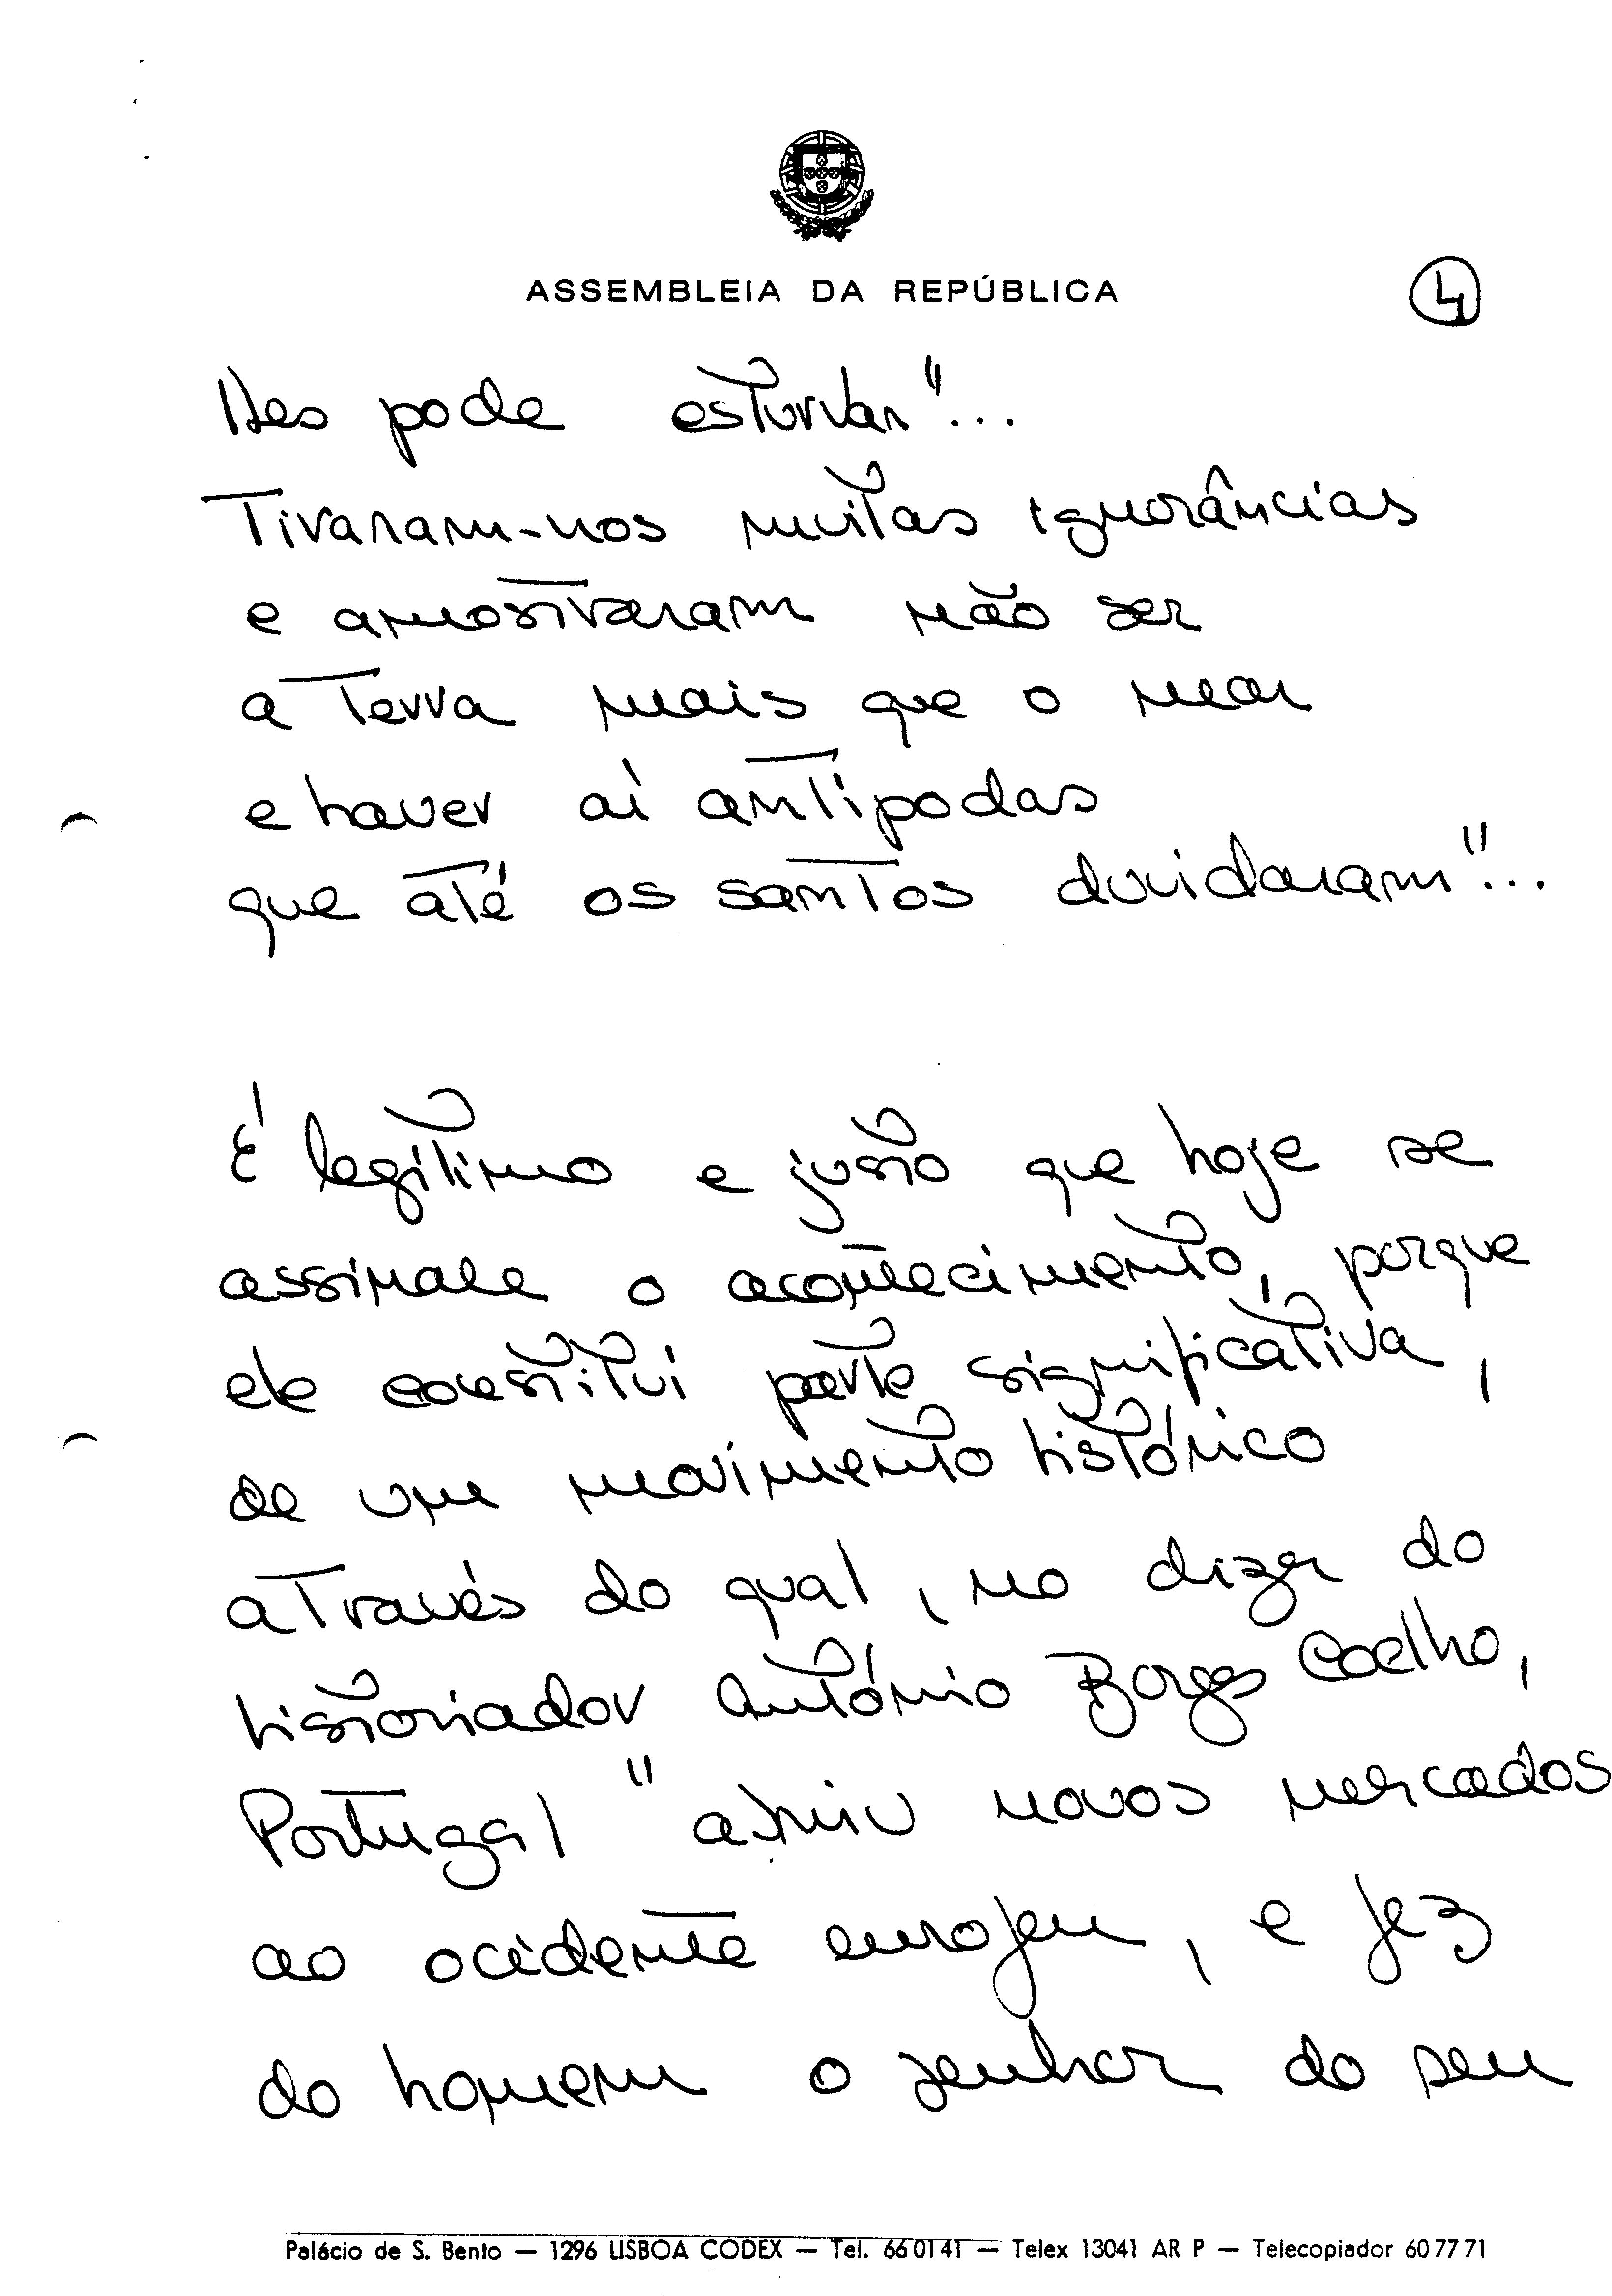 ASSEMBLEIA DA REPÚBLICA
4
lhes pode estorvar"...
Tiraram-nos muitas ignorâncias
e amostraram não ser
a terra mais que o mar
e haver aí antípodas
que até os santos duvidaram"...
É legítimo e justo que hoje se
assinale o acontecimento, porque
ele constitui parte significativa,
de um movimento histórico
através do qual, no dizer do
historiador António Borges Coelho,
Portugal "abriu novos mercados
ao ocidente europeu, e fez
do homem o senhor do seu
Palácio de S. Bento — 1296 LISBOA CODEX — Tel. 66 01 41 — Telex 13041 AR P — Telecopiador 60 77 71